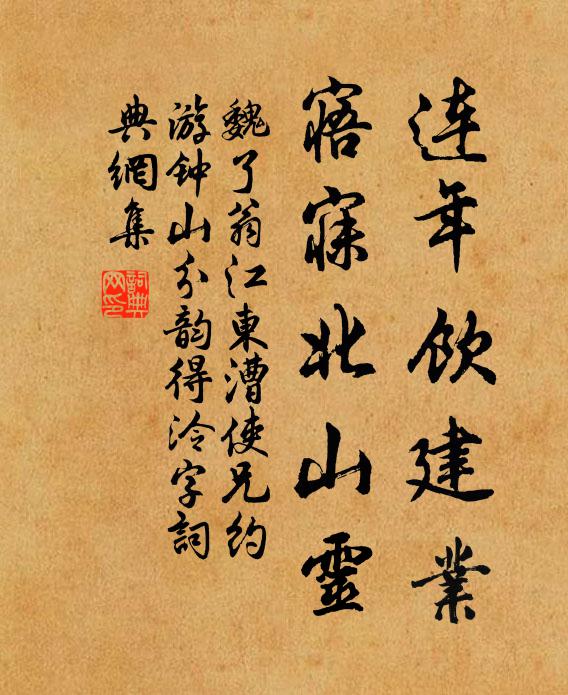 连年饮建业
寤寐北山灵
魏了翁江东漕使兄约
游钟山分韵得泠字词
典網集
詞典
网印